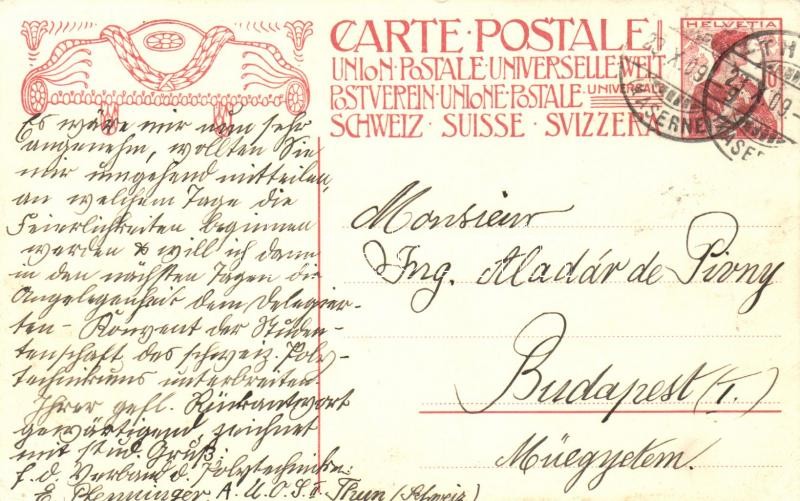 CARTE·POSTALE
UNION·POSTALE·UNIVERSELLE·WELT
POSTVEREIN·UNIONE·POSTALE·UNIVERSALE
SCHWEIZ·SUISSE·SVIZZERA
HELVETIA
Es wäre mir nun sehr
angenehm, wollten Sie
mir umgehend mitteilen,
an welchem Tage die
Feierlichkeiten beginnen
werden & will ich dann
in den nächsten Tagen die
Angelegenheit dem Delegier-
ten-Konvent der Studen-
tenschaft des schweiz. Poly-
technikums unterbreiten.
Ihrer gefl. Rückantwort
gewärtigend, zeichnet
mit stud. Gruß:
f. d. Verband d. Polytechniker:
Thun (Schweiz)
Monsieur
Ing. Aladár de Pivny
Budapest (I.)
Müegyetem.